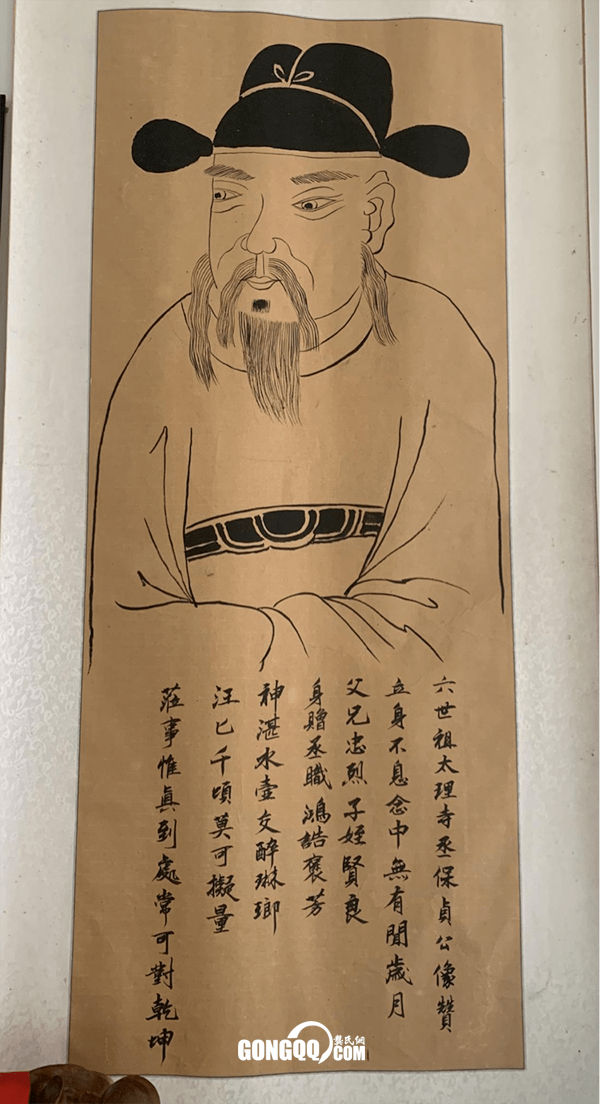 六世祖太理寺丞保貞公像贊
立身不息念中無有閒歲月
父兄忠烈子姪賢良
身贈丞職鴻誥褒芳
神湛水壺文醉琳瑯
汪匕千頃莫可擬量
蒞事惟真到處常可對乾坤
GONGQQ.COM
龔氏網